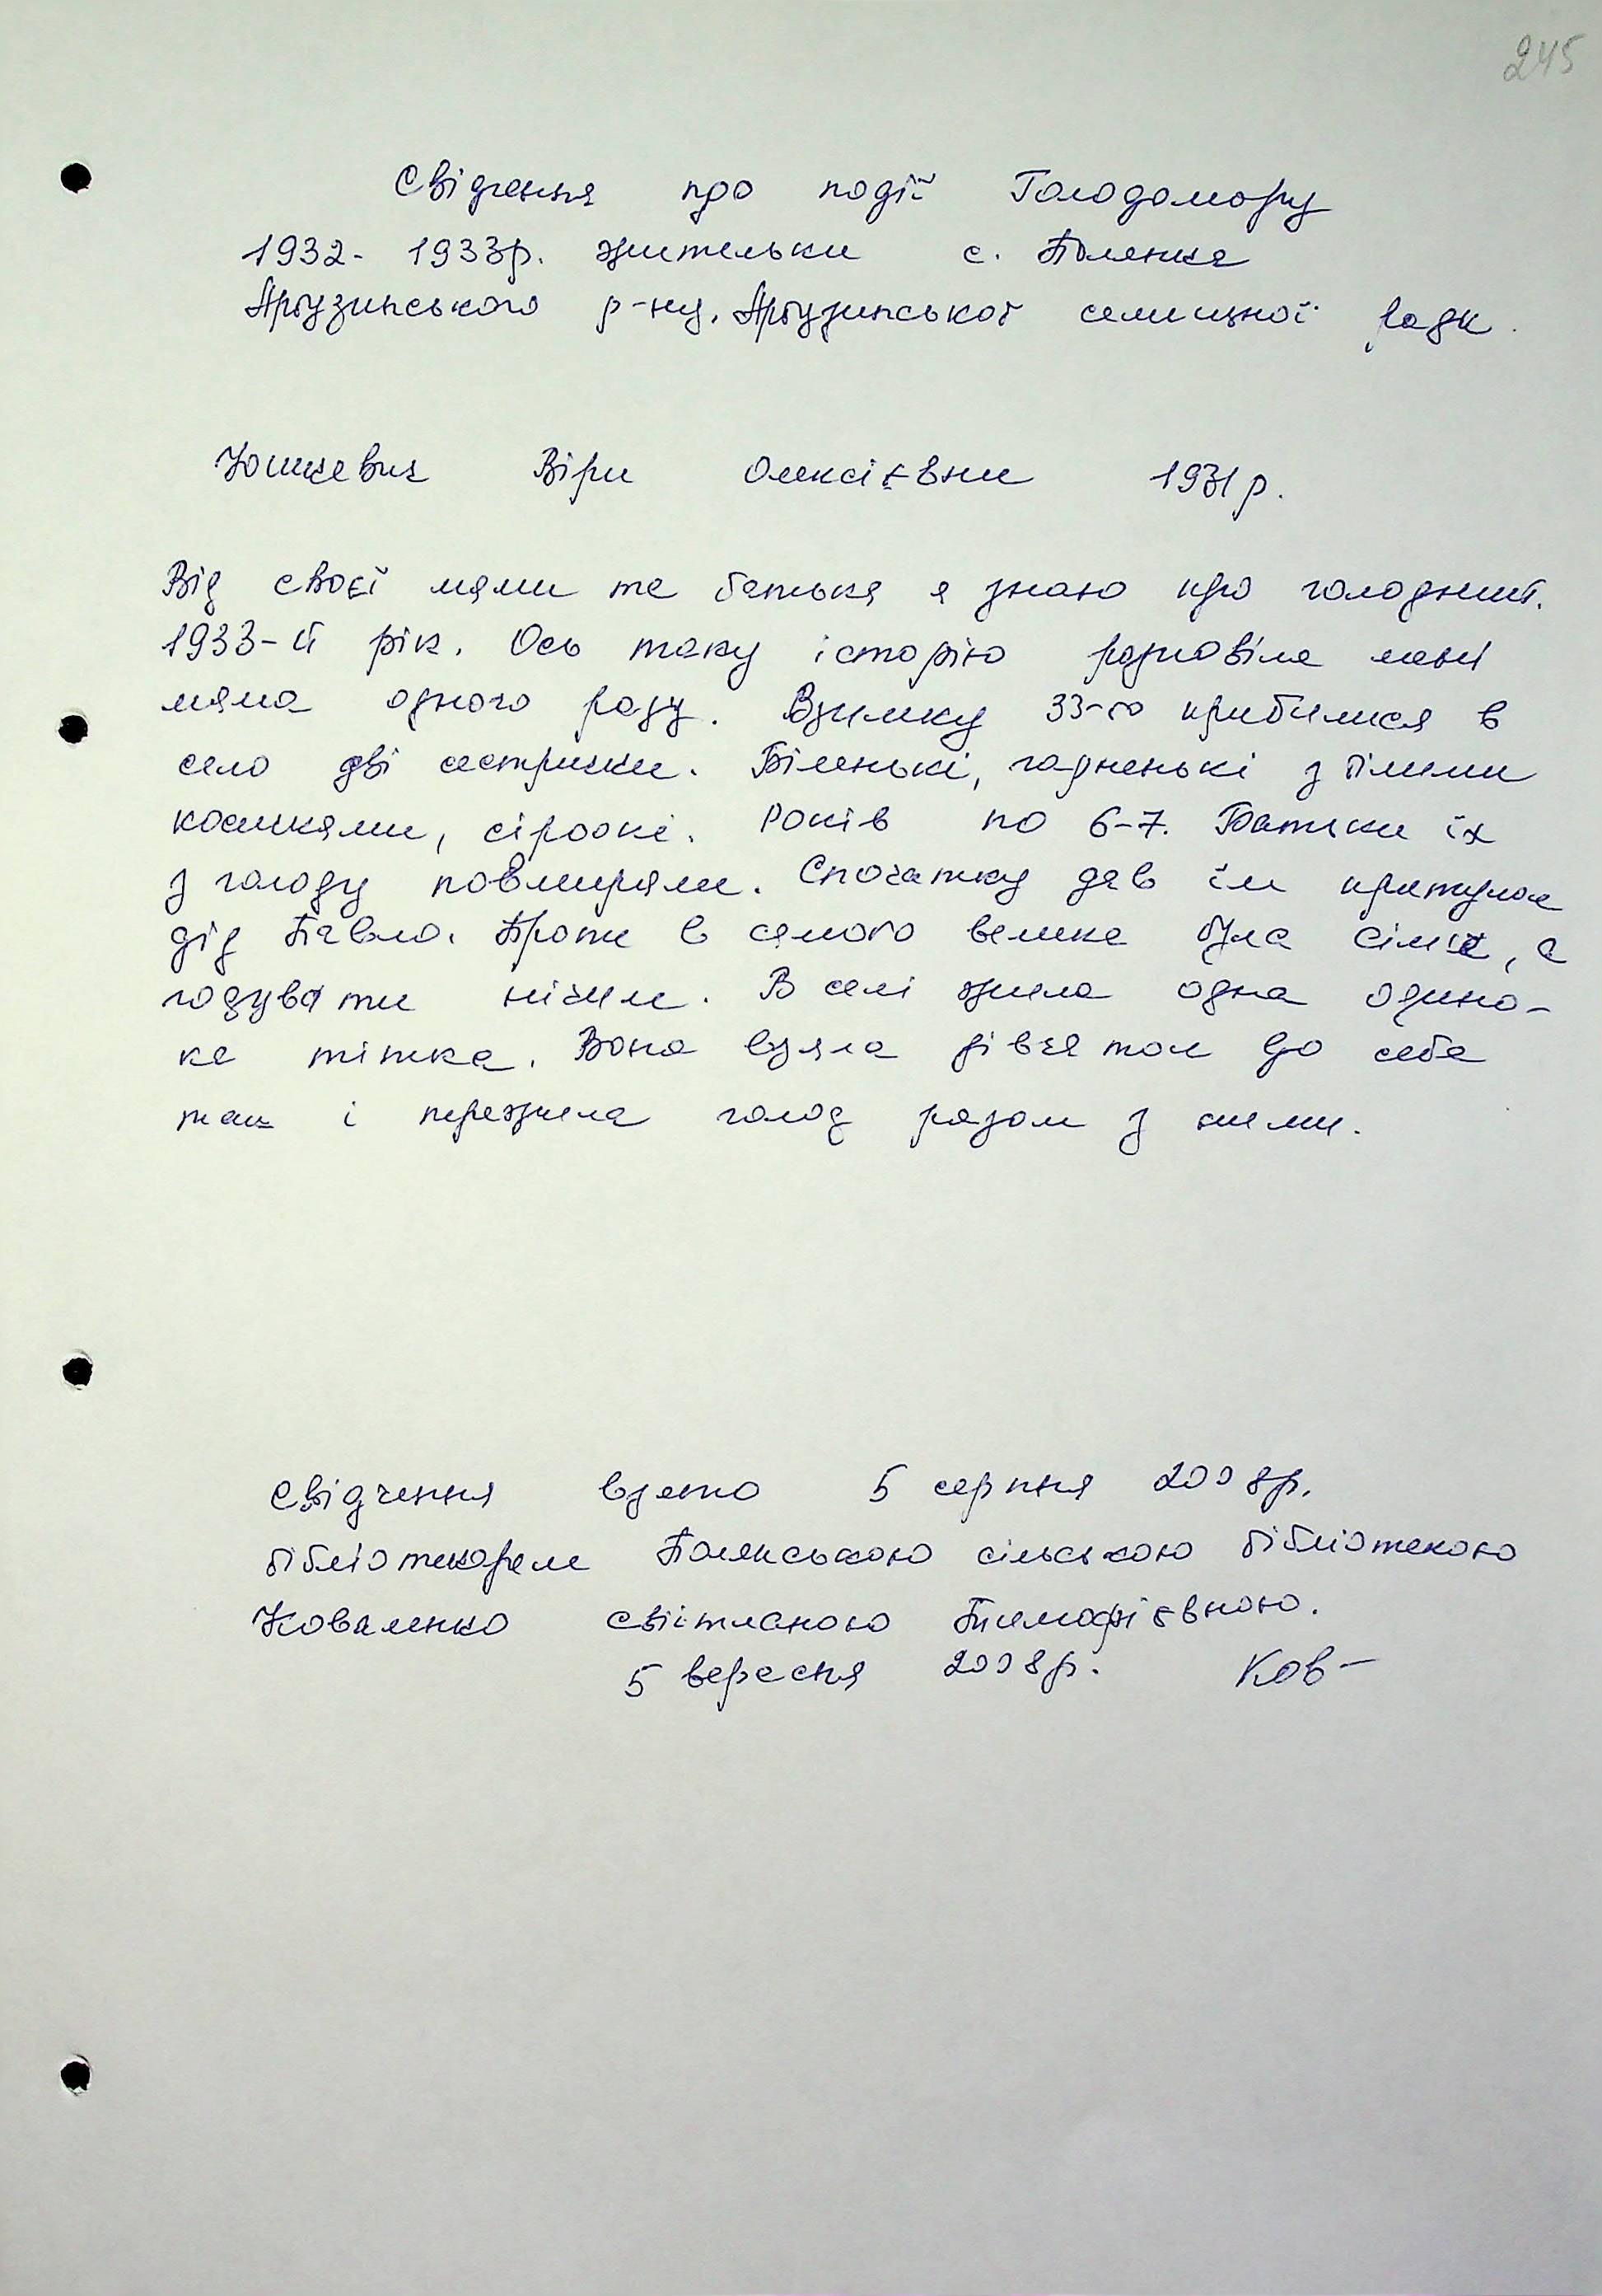 245
Свідчення про події Голодомору
1932- 1933р. жительки с. Полянка
Арбузинського р-ну, Арбузинської селищної ради.
Віри Олексіївни 1931р.
Від своєї мами та батька я знаю про голодний
1933-й рік. Ось таку історію розповіла мені
мама одного разу. Взимку 33-го прибилися в
село дві сестрички. Біленькі, гарненькі з білими
косичками, сіроокі. Років по 6-7. Батьки їх
з голоду повмирали. Спочатку дав їм притулок
дід Павло. Проти в самого велика була сім'я, а
годувати нічим. В селі жила одна одино-
ка тітка. Вона взяла дівчаток до себе
так і пережила голод разом з ними.
Свідчення взято 5 серпня 2008р.
бібліотекарем Полянською сільською бібліотекою
Коваленко Світланою Тимофіївною.
5 вересня 2008р. Ков-